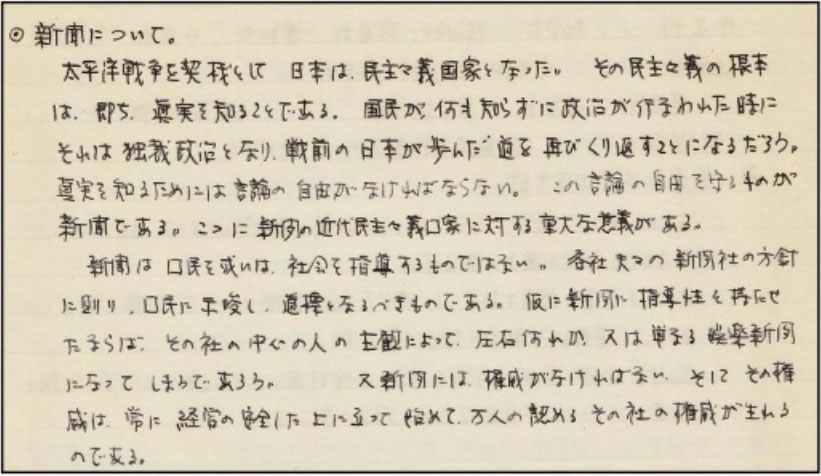 ◎ 新聞について。
太平洋戦争を契機として 日本は、民主々義国家となった。 その民主々義の根本
は、即ち、真実を知ることである。 国民が、何も知らずに政治が行なわれた時に
それは独裁政治となり、戦前の日本が歩んだ道を再びくり返すことになるだろう。
真実を知るためには言論の自由がなければならない。 この言論の自由を守るものが
新聞である。 ここに新聞の近代民主々義口家に対する重大な意義がある。
新聞は口民を或いは、社会を指導するものではない。 各社夫々の新聞社の方針
に則り、口民に示唆し、道標となるべきものである。 仮に新聞に指導性を持たせ
たならば、その社の中心の人の主観によって、左右何れか、又は単なる娯楽新聞
になってしまうであろう。 又新聞には、権威がなければない、そして その権
威は、常に経営の安全した上に立って始めて、万人の認めるその社の権威が生れる
のである。